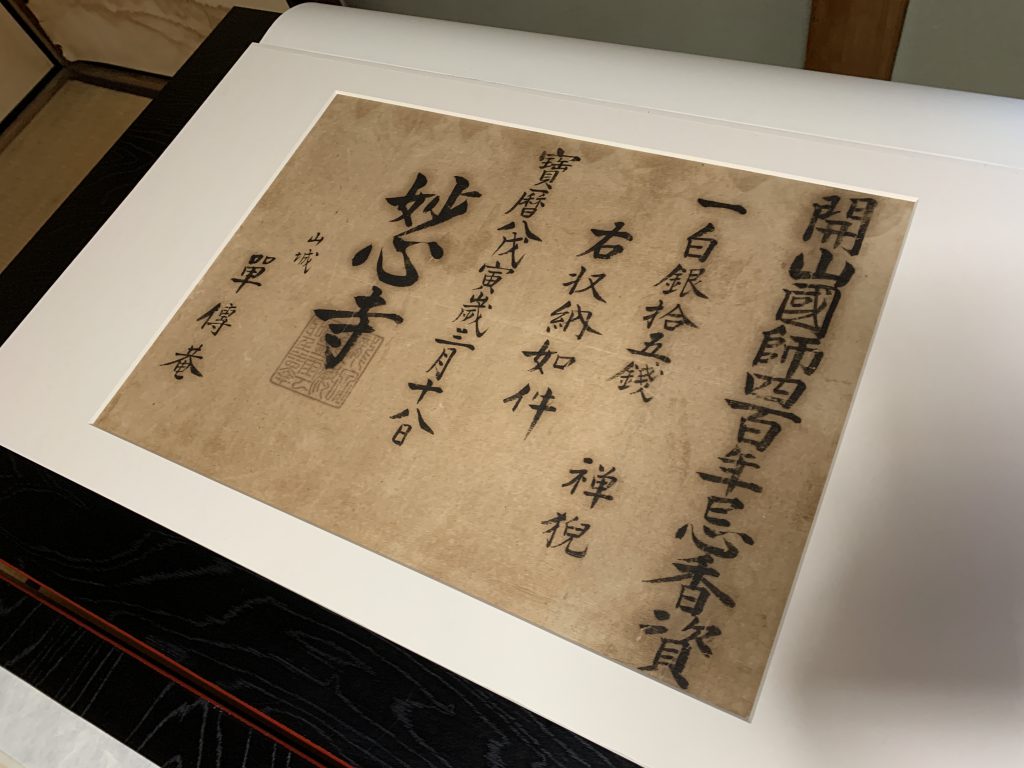 開山國師四百年忌香資
一白銀拾五錢
禅猊
右収納如件
寶曆八戊寅歳三月十八日
妙心寺
山城
單傳菴